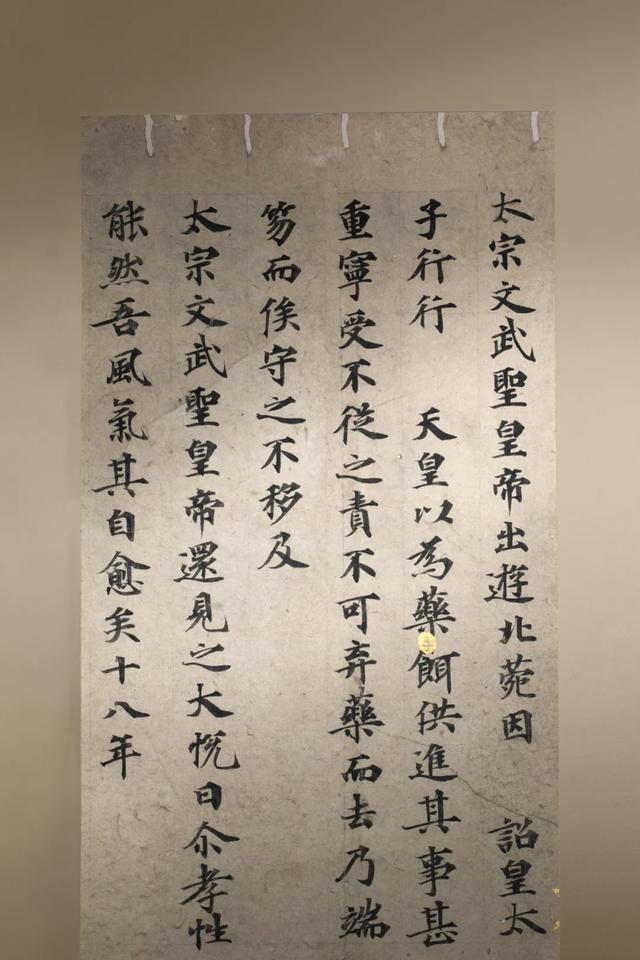 太宗文武聖皇帝出遊北菀因　詔皇太
子行行　天皇以為藥餌供進其事甚
重寧受不從之責不可弃藥而去乃端
笏而俟守之不移及
太宗文武聖皇帝還見之大悅曰尒孝性
能然吾風氣其自愈矣十八年